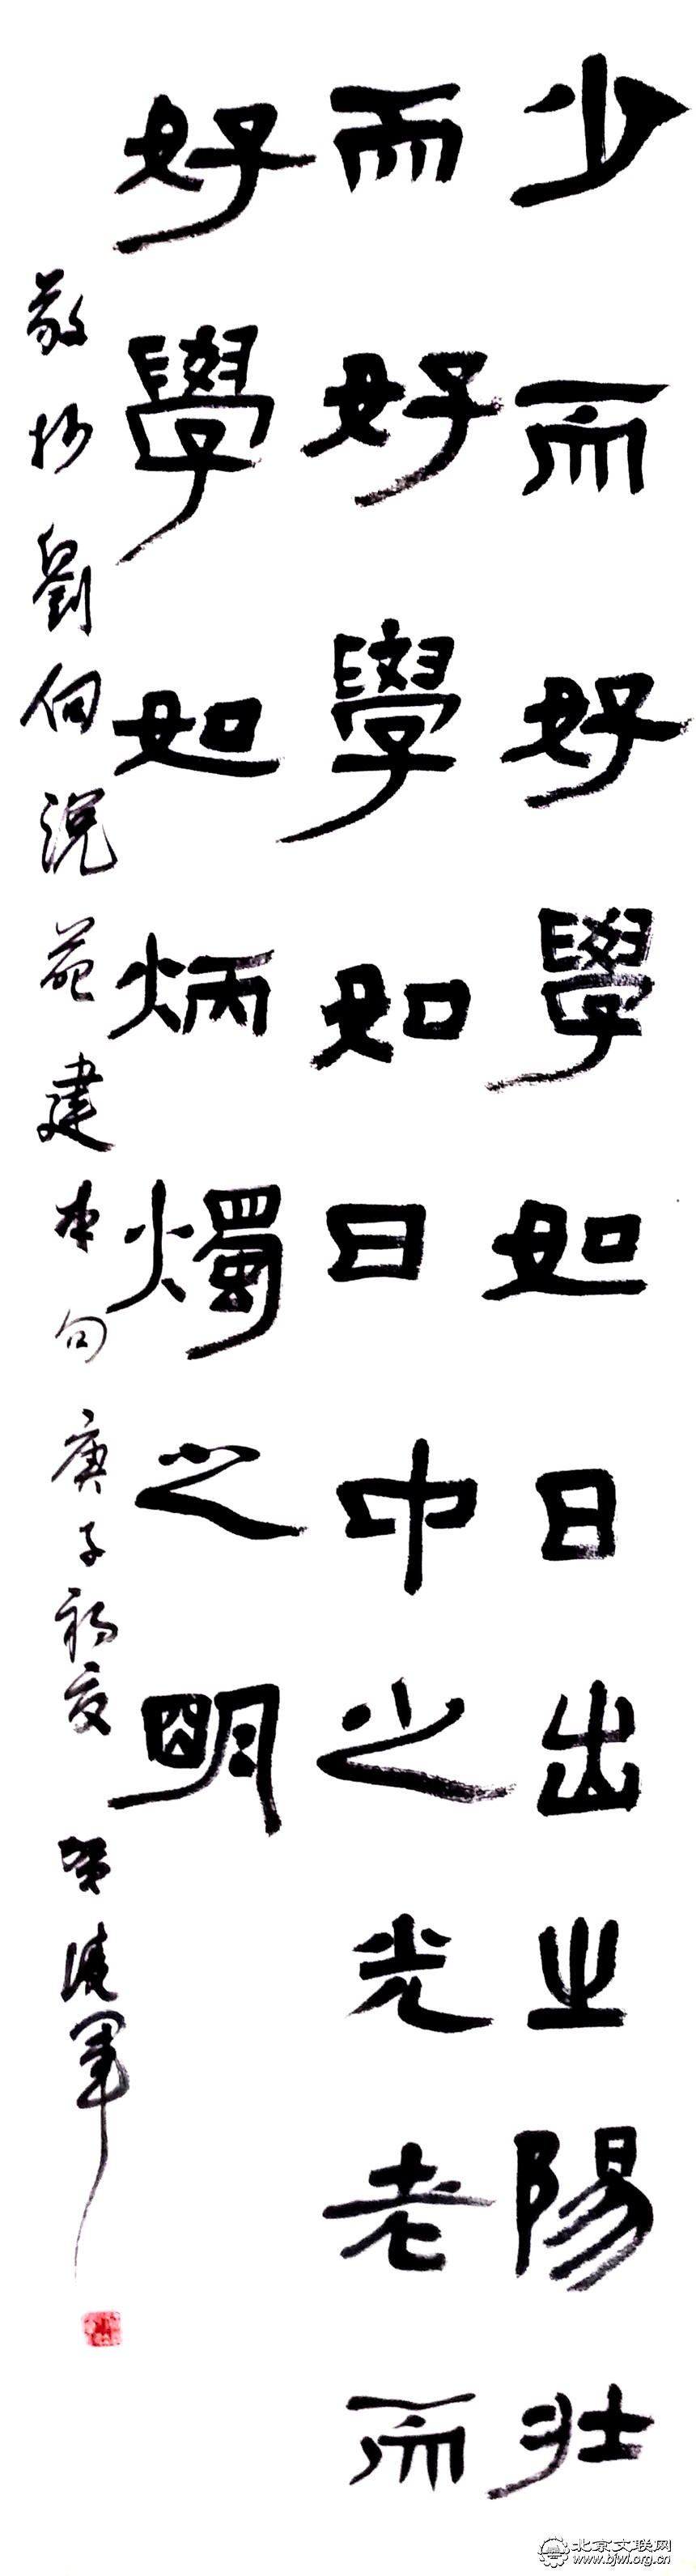 少而好學如日出之陽壯
而好學如日中之光老而
好學如炳燭之明
敬抄劉向說苑建本句庚子初夏
軍
北京文联网
www.bjwl.org.cn